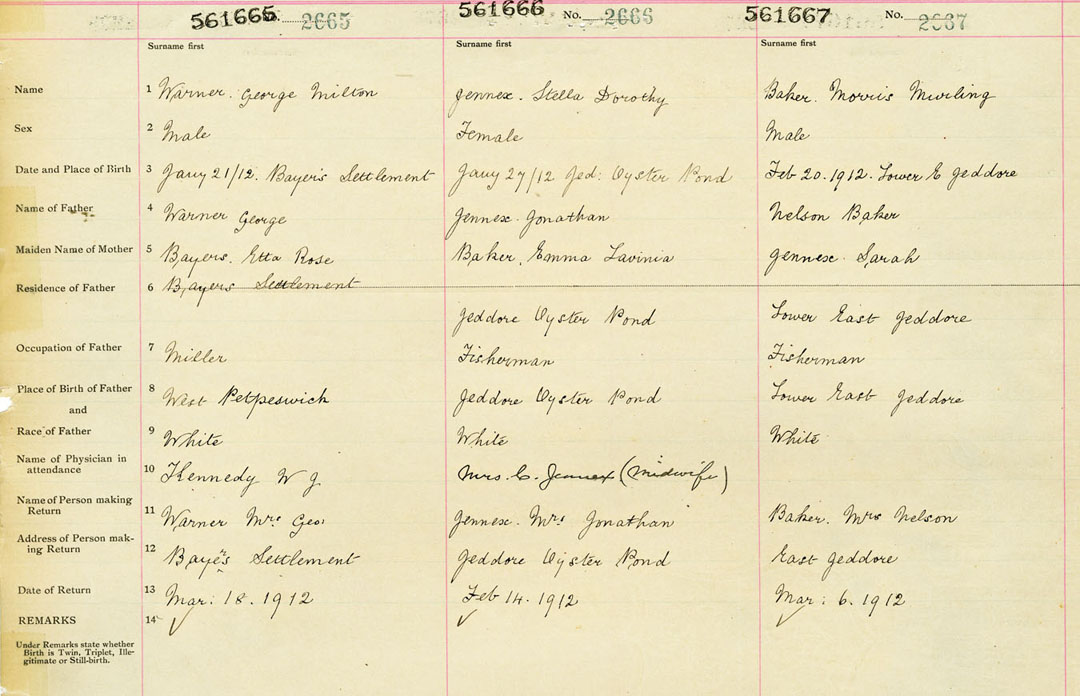 561665 2665 561666 No. 2666 561667 No. 2667
Surname first Surname first Surname first
Name 1 Warner. George Milton Jennex. Stella Dorothy Baker. Morris Murling
Sex 2 Male Female Male
Date and Place of Birth 3 Jany 21/12. Bayer's Settlement Jany 27/12 Jed: Oyster Pond Feb 20. 1912. Lower E Jeddore
Name of Father 4 Warner George Jennex. Jonathan Nelson Baker
Maiden Name of Mother 5 Bayers. Etta Rose Baker, Emma Lavinia Jennex. Sarah
Residence of Father 6 Bayers Settlement
Jeddore Oyster Pond Lower East Jeddore
Occupation of Father 7 Miller Fisherman Fisherman
Place of Birth of Father 8 West Petpeswich Jeddore Oyster Pond Lower East Jeddore
and
Race of Father 9 White White White
Name of Physician in
attendance 10 Kennedy W J Mrs. C. Jennex (Midwife)
Name of Person making
Return 11 Warner Mrs Geo. Jennex. Mrs Jonathan Baker. Mrs Nelson
Address of Person mak-
ing Return 12 Baye's Settlement Jeddore Oyster Pond East Jeddore
Date of Return 13 Mar: 18. 1912 Feb 14. 1912 Mar: 6. 1912
REMARKS 14 ✓ ✓ ✓
Under Remarks state whether
Birth is Twin, Triplet, Ille-
gitimate or Still-birth.